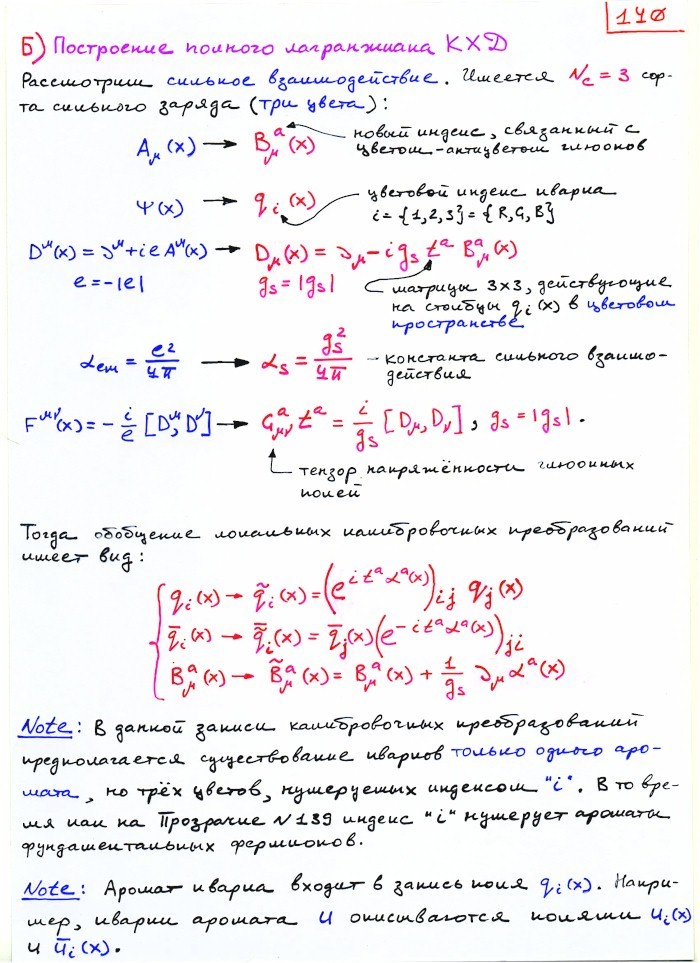 140
Б) Построение полного лагранжиана КХД
Рассмотрим сильное взаимодействие. Имеется N_c = 3 сор-
та сильного заряда (три цвета):
A_μ(x) → B^a_μ(x) новый индекс, связанный с
цветом-антицветом глюонов
Ψ(x) → q_i(x) цветовой индекс кварка
i = {1,2,3} = {R,G,B}
D^μ(x) = ∂^μ + ieA^μ(x) → D_μ(x) = ∂_μ − i g_s t^a B^a_μ(x)
e = −|e| g_s = |g_s| матрицы 3×3, действующие
на столбцы q_i(x) в цветовом
пространстве
α_em = e²/4π → α_s = g_s²/4π – константа сильного взаимо-
действия
F^μν(x) = − i/e [D^μ, D^ν] → G^a_μν t^a = i/g_s [D_μ, D_ν], g_s = |g_s|.
тензор напряжённости глюонных
полей
Тогда обобщение локальных калибровочных преобразований
имеет вид:
q_i(x) → q̃_i(x) = (e^{i t^a α^a(x)})_ij q_j(x)
q̄_i(x) → q̄̃_i(x) = q̄_j(x) (e^{−i t^a α^a(x)})_ji
B^a_μ(x) → B̃^a_μ(x) = B^a_μ(x) + 1/g_s ∂_μ α^a(x)
Note: В данной записи калибровочных преобразований
предполагается существование кварков только одного аро-
мата, но трёх цветов, нумеруемых индексом "i". В то вре-
мя как на Прозрачке N139 индекс "i" нумерует ароматы
фундаментальных фермионов.
Note: Аромат кварка входит в запись поля q_i(x). Напри-
мер, кварки аромата u описываются полями u_i(x)
и ū_i(x).